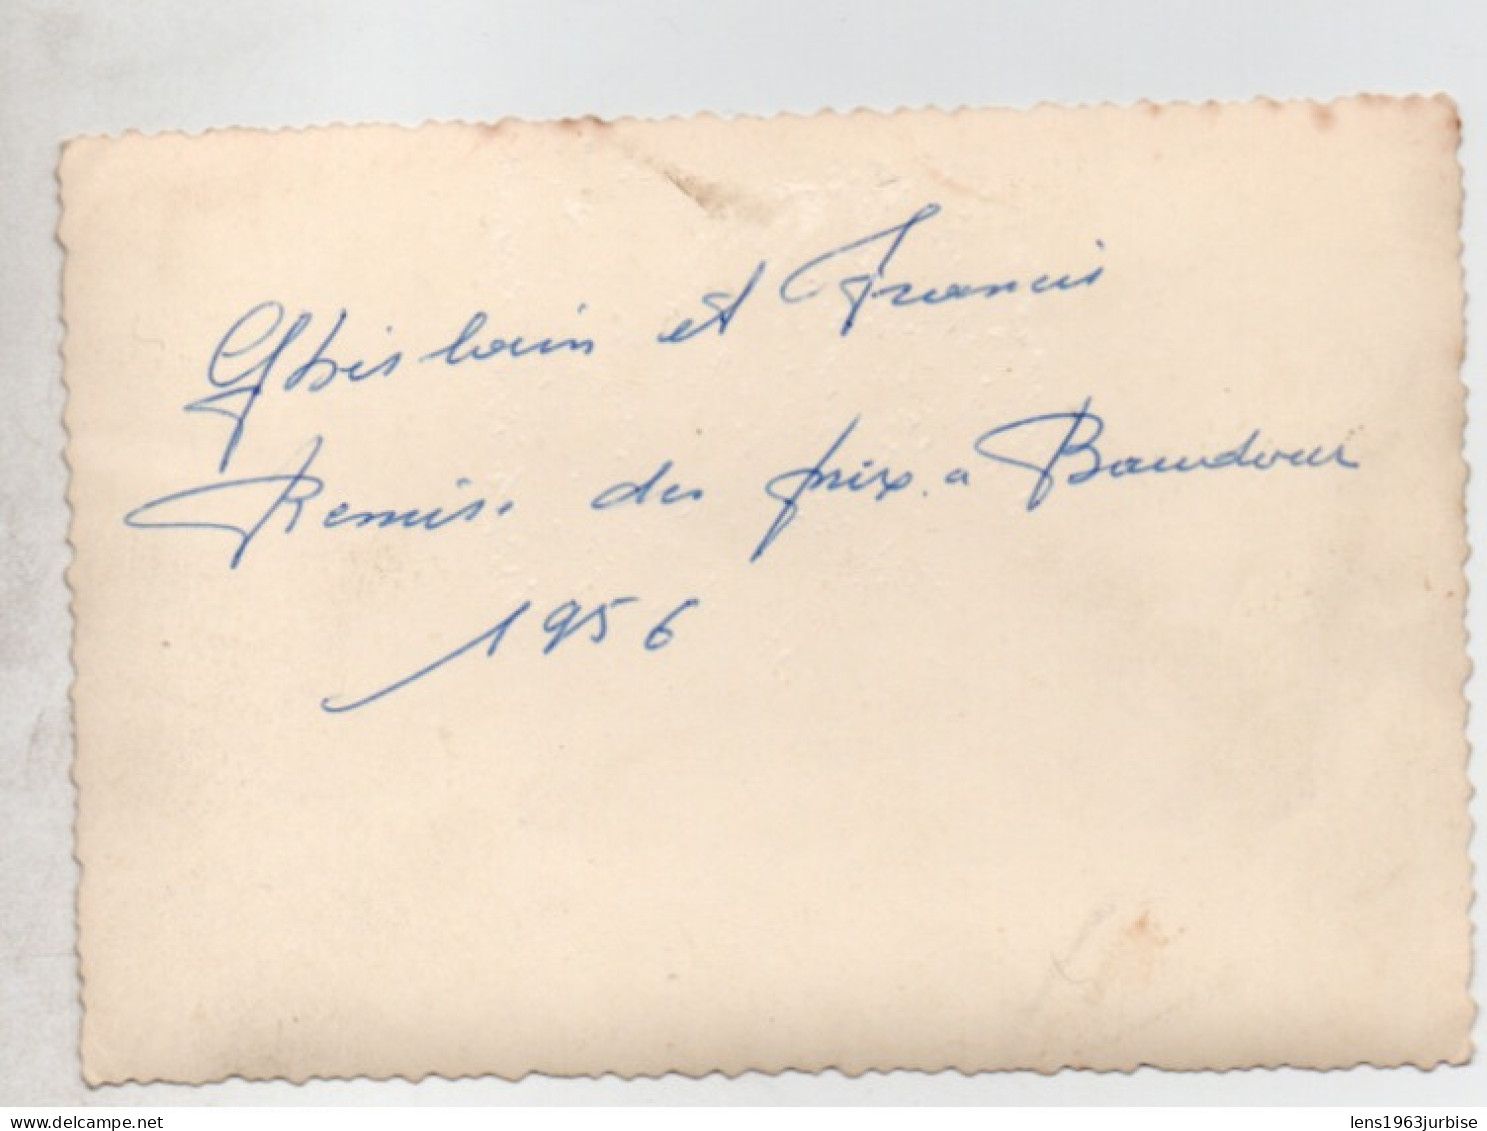 Ghislain et Francis
Remise des prix a Baudour
1956
delcampe.net
lens1963jurbise